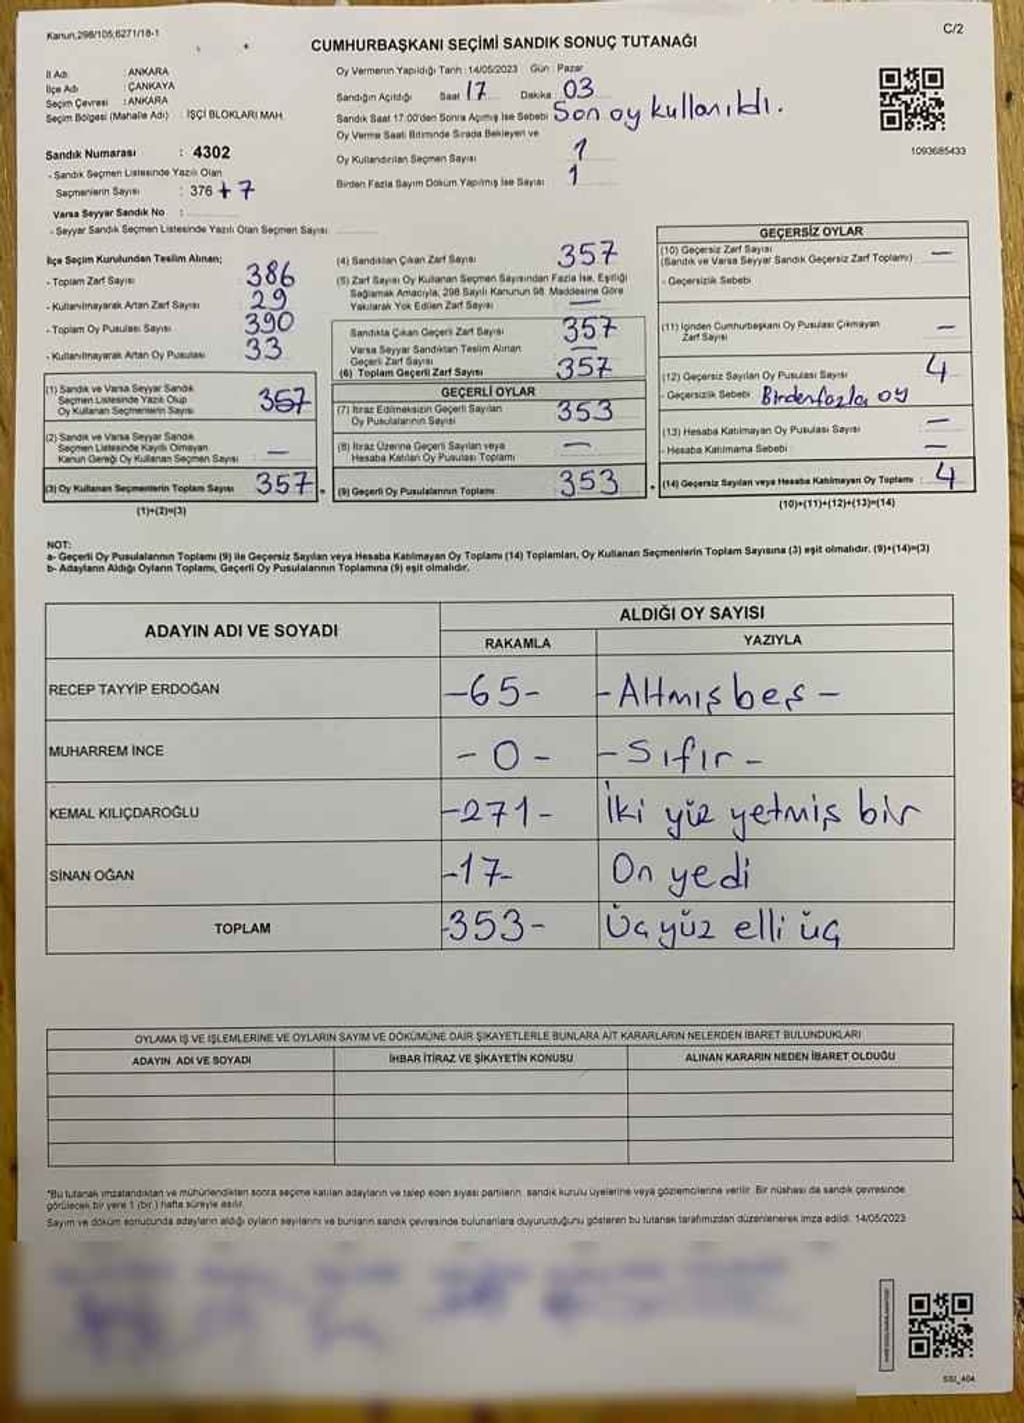 Kanun,298/105,6271/18-1
C/2
CUMHURBAŞKANI SEÇİMİ SANDIK SONUÇ TUTANAĞI
İl Adı : ANKARA
İlçe Adı : ÇANKAYA
Seçim Çevresi : ANKARA
Seçim Bölgesi (Mahalle Adı) : İŞÇİ BLOKLARI MAH.
Sandık Numarası : 4302
- Sandık Seçmen Listesinde Yazılı Olan
Seçmenlerin Sayısı : 376 + 7
Varsa Seyyar Sandık No :
- Seyyar Sandık Seçmen Listesinde Yazılı Olan Seçmen Sayısı
Oy Vermenin Yapıldığı Tarih : 14/05/2023 Gün : Pazar
Sandığın Açıldığı Saat 17 Dakika 03
Sandık Saat 17:00'den Sonra Açılmış İse Sebebi Son oy kullanıldı.
Oy Verme Saati Bitiminde Sırada Bekleyen ve
Oy Kullandırılan Seçmen Sayısı 1
Birden Fazla Sayım Döküm Yapılmış İse Sayısı 1
1093685433
İlçe Seçim Kurulundan Teslim Alınan;
- Toplam Zarf Sayısı 386
- Kullanılmayarak Artan Zarf Sayısı 29
- Toplam Oy Pusulası Sayısı 390
- Kullanılmayarak Artan Oy Pusulası 33
(1) Sandık ve Varsa Seyyar Sandık
Seçmen Listesinde Yazılı Olup
Oy Kullanan Seçmenlerin Sayısı 357
(2) Sandık ve Varsa Seyyar Sandık
Seçmen Listesinde Kayıtlı Olmayan
Kanun Gereği Oy Kullanan Seçmen Sayısı —
(3) Oy Kullanan Seçmenlerin Toplam Sayısı 357
(1)+(2)=(3)
(4) Sandıktan Çıkan Zarf Sayısı 357
(5) Zarf Sayısı Oy Kullanan Seçmen Sayısından Fazla İse, Eşitliği
Sağlamak Amacıyla, 298 Sayılı Kanunun 98. Maddesine Göre
Yakılarak Yok Edilen Zarf Sayısı —
Sandıkta Çıkan Geçerli Zarf Sayısı 357
Varsa Seyyar Sandıktan Teslim Alınan
Geçerli Zarf Sayısı —
(6) Toplam Geçerli Zarf Sayısı 357
GEÇERLİ OYLAR
(7) İtiraz Edilmeksizin Geçerli Sayılan
Oy Pusulalarının Sayısı 353
(8) İtiraz Üzerine Geçerli Sayılan veya
Hesaba Katılan Oy Pusulası Toplamı —
(9) Geçerli Oy Pusulalarının Toplamı 353
GEÇERSİZ OYLAR
(10) Geçersiz Zarf Sayısı
(Sandık ve Varsa Seyyar Sandık Geçersiz Zarf Toplamı) —
- Geçersizlik Sebebi
(11) İçinden Cumhurbaşkanı Oy Pusulası Çıkmayan
Zarf Sayısı —
(12) Geçersiz Sayılan Oy Pusulası Sayısı 4
- Geçersizlik Sebebi Birden fazla oy
(13) Hesaba Katılmayan Oy Pusulası Sayısı —
- Hesaba Katılmama Sebebi —
(14) Geçersiz Sayılan veya Hesaba Katılmayan Oy Toplamı : 4
(10)+(11)+(12)+(13)=(14)
NOT:
a- Geçerli Oy Pusulalarının Toplamı (9) ile Geçersiz Sayılan veya Hesaba Katılmayan Oy Toplamı (14) Toplamları, Oy Kullanan Seçmenlerin Toplam Sayısına (3) eşit olmalıdır. (9)+(14)=(3)
b- Adayların Aldığı Oyların Toplamı, Geçerli Oy Pusulalarının Toplamına (9) eşit olmalıdır.
ADAYIN ADI VE SOYADI
ALDIĞI OY SAYISI
RAKAMLA YAZIYLA
RECEP TAYYİP ERDOĞAN -65- -Altmış beş-
MUHARREM İNCE -0- -Sıfır-
KEMAL KILIÇDAROĞLU -271- İki yüz yetmiş bir
SİNAN OĞAN -17- On yedi
TOPLAM -353- Üç yüz elli üç
OYLAMA İŞ VE İŞLEMLERİNE VE OYLARIN SAYIM VE DÖKÜMÜNE DAİR ŞİKAYETLERLE BUNLARA AİT KARARLARIN NELERDEN İBARET BULUNDUKLARI
ADAYIN ADI VE SOYADI İHBAR İTİRAZ VE ŞİKAYETİN KONUSU ALINAN KARARIN NEDEN İBARET OLDUĞU
*Bu tutanak imzalandıktan ve mühürlendikten sonra seçime katılan adayların ve talep eden siyasi partilerin, sandık kurulu üyelerine veya gözlemcilerine verilir. Bir nüshası da sandık çevresinde
görülecek bir yere 1 (bir) hafta süreyle asılır.
Sayım ve döküm sonucunda adayların aldığı oyların sayılarını ve bunların sandık çevresinde bulunanlara duyurulduğunu gösteren bu tutanak tarafımızdan düzenlenerek imza edildi. 14/05/2023
SSI_404